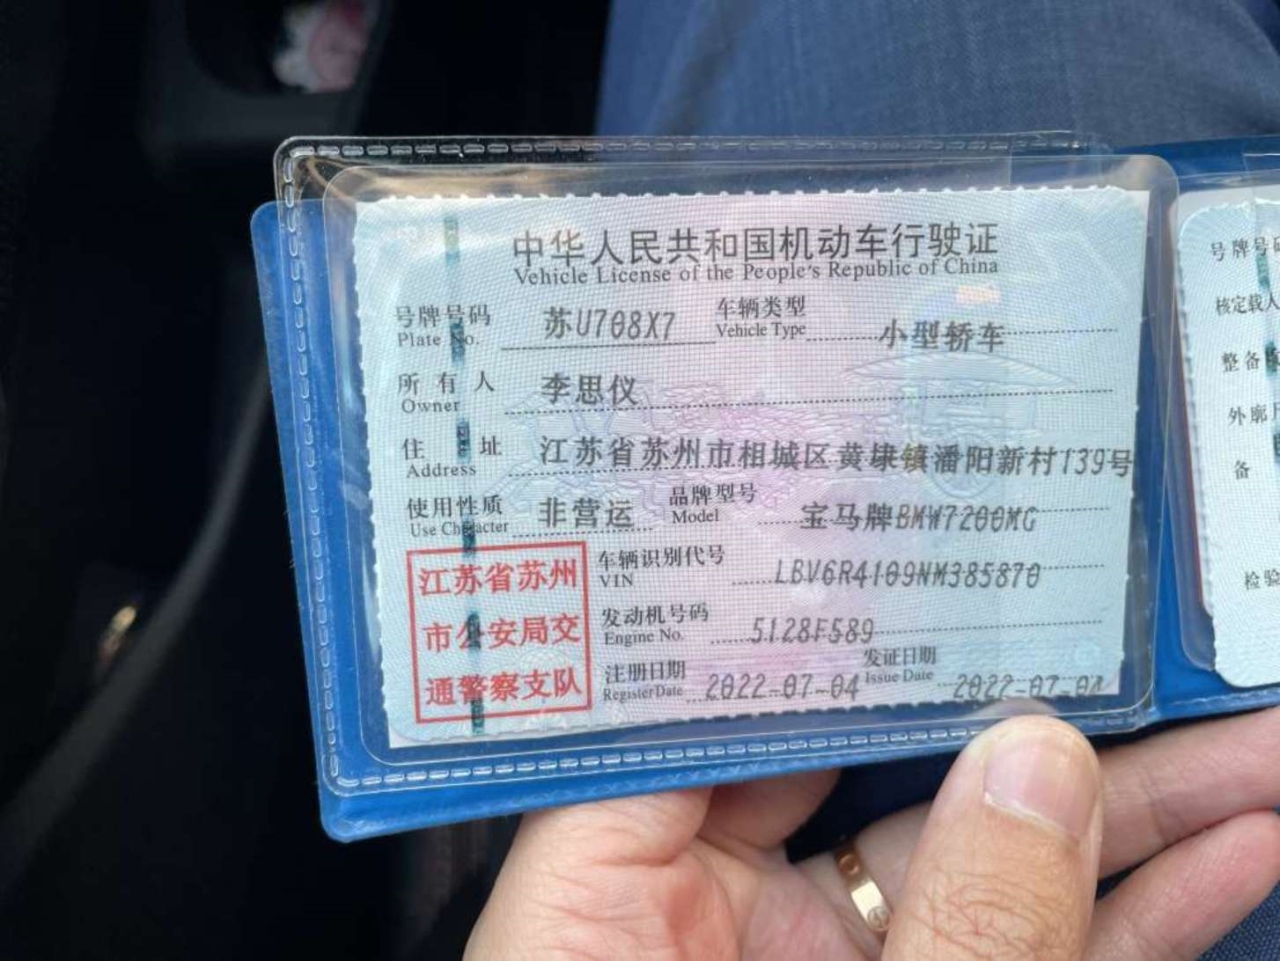 中华人民共和国机动车行驶证
Vehicle License of the People's Republic of China
号牌号码 苏U708X7 车辆类型 小型轿车
Plate No. Vehicle Type
所有人 李思仪
Owner
住址 江苏省苏州市相城区黄埭镇潘阳新村139号
Address
使用性质 非营运 品牌型号 宝马牌BMW7200MG
Use Character Model
江苏省苏州
市公安局交
通警察支队
车辆识别代号 LBV6R4109NM385870
VIN
发动机号码 5128F589
Engine No.
注册日期 2022-07-04 发证日期 2022-07-04
Register Date Issue Date
号牌号
核定载人
整备
外廓
备
检验